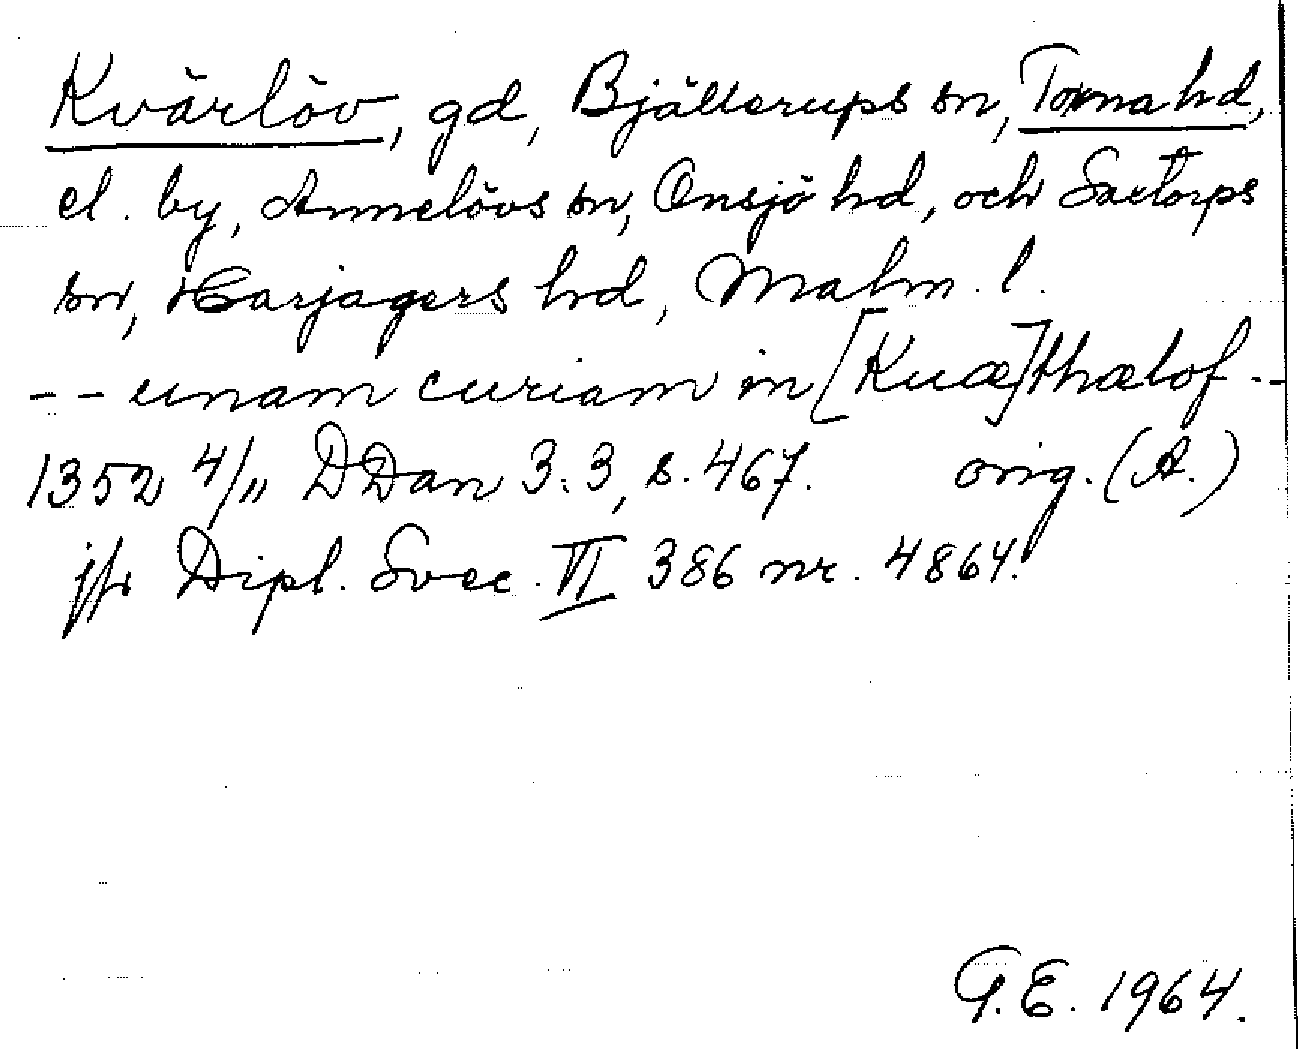 Kvärlöv, gd, Bjällerups sn, Torna hd,
el. by, Annelövs sn, Onsjö hd, och Saxtorps
sn, Harjagers hd, Malm. l.
-- unam curiam in [Kuæ]thæløf --
1352 4/11 DDan 3:3, s. 467. orig. (A.)
jfr Dipl. Svec. VI 386 nr. 4864.
G.E. 1964.